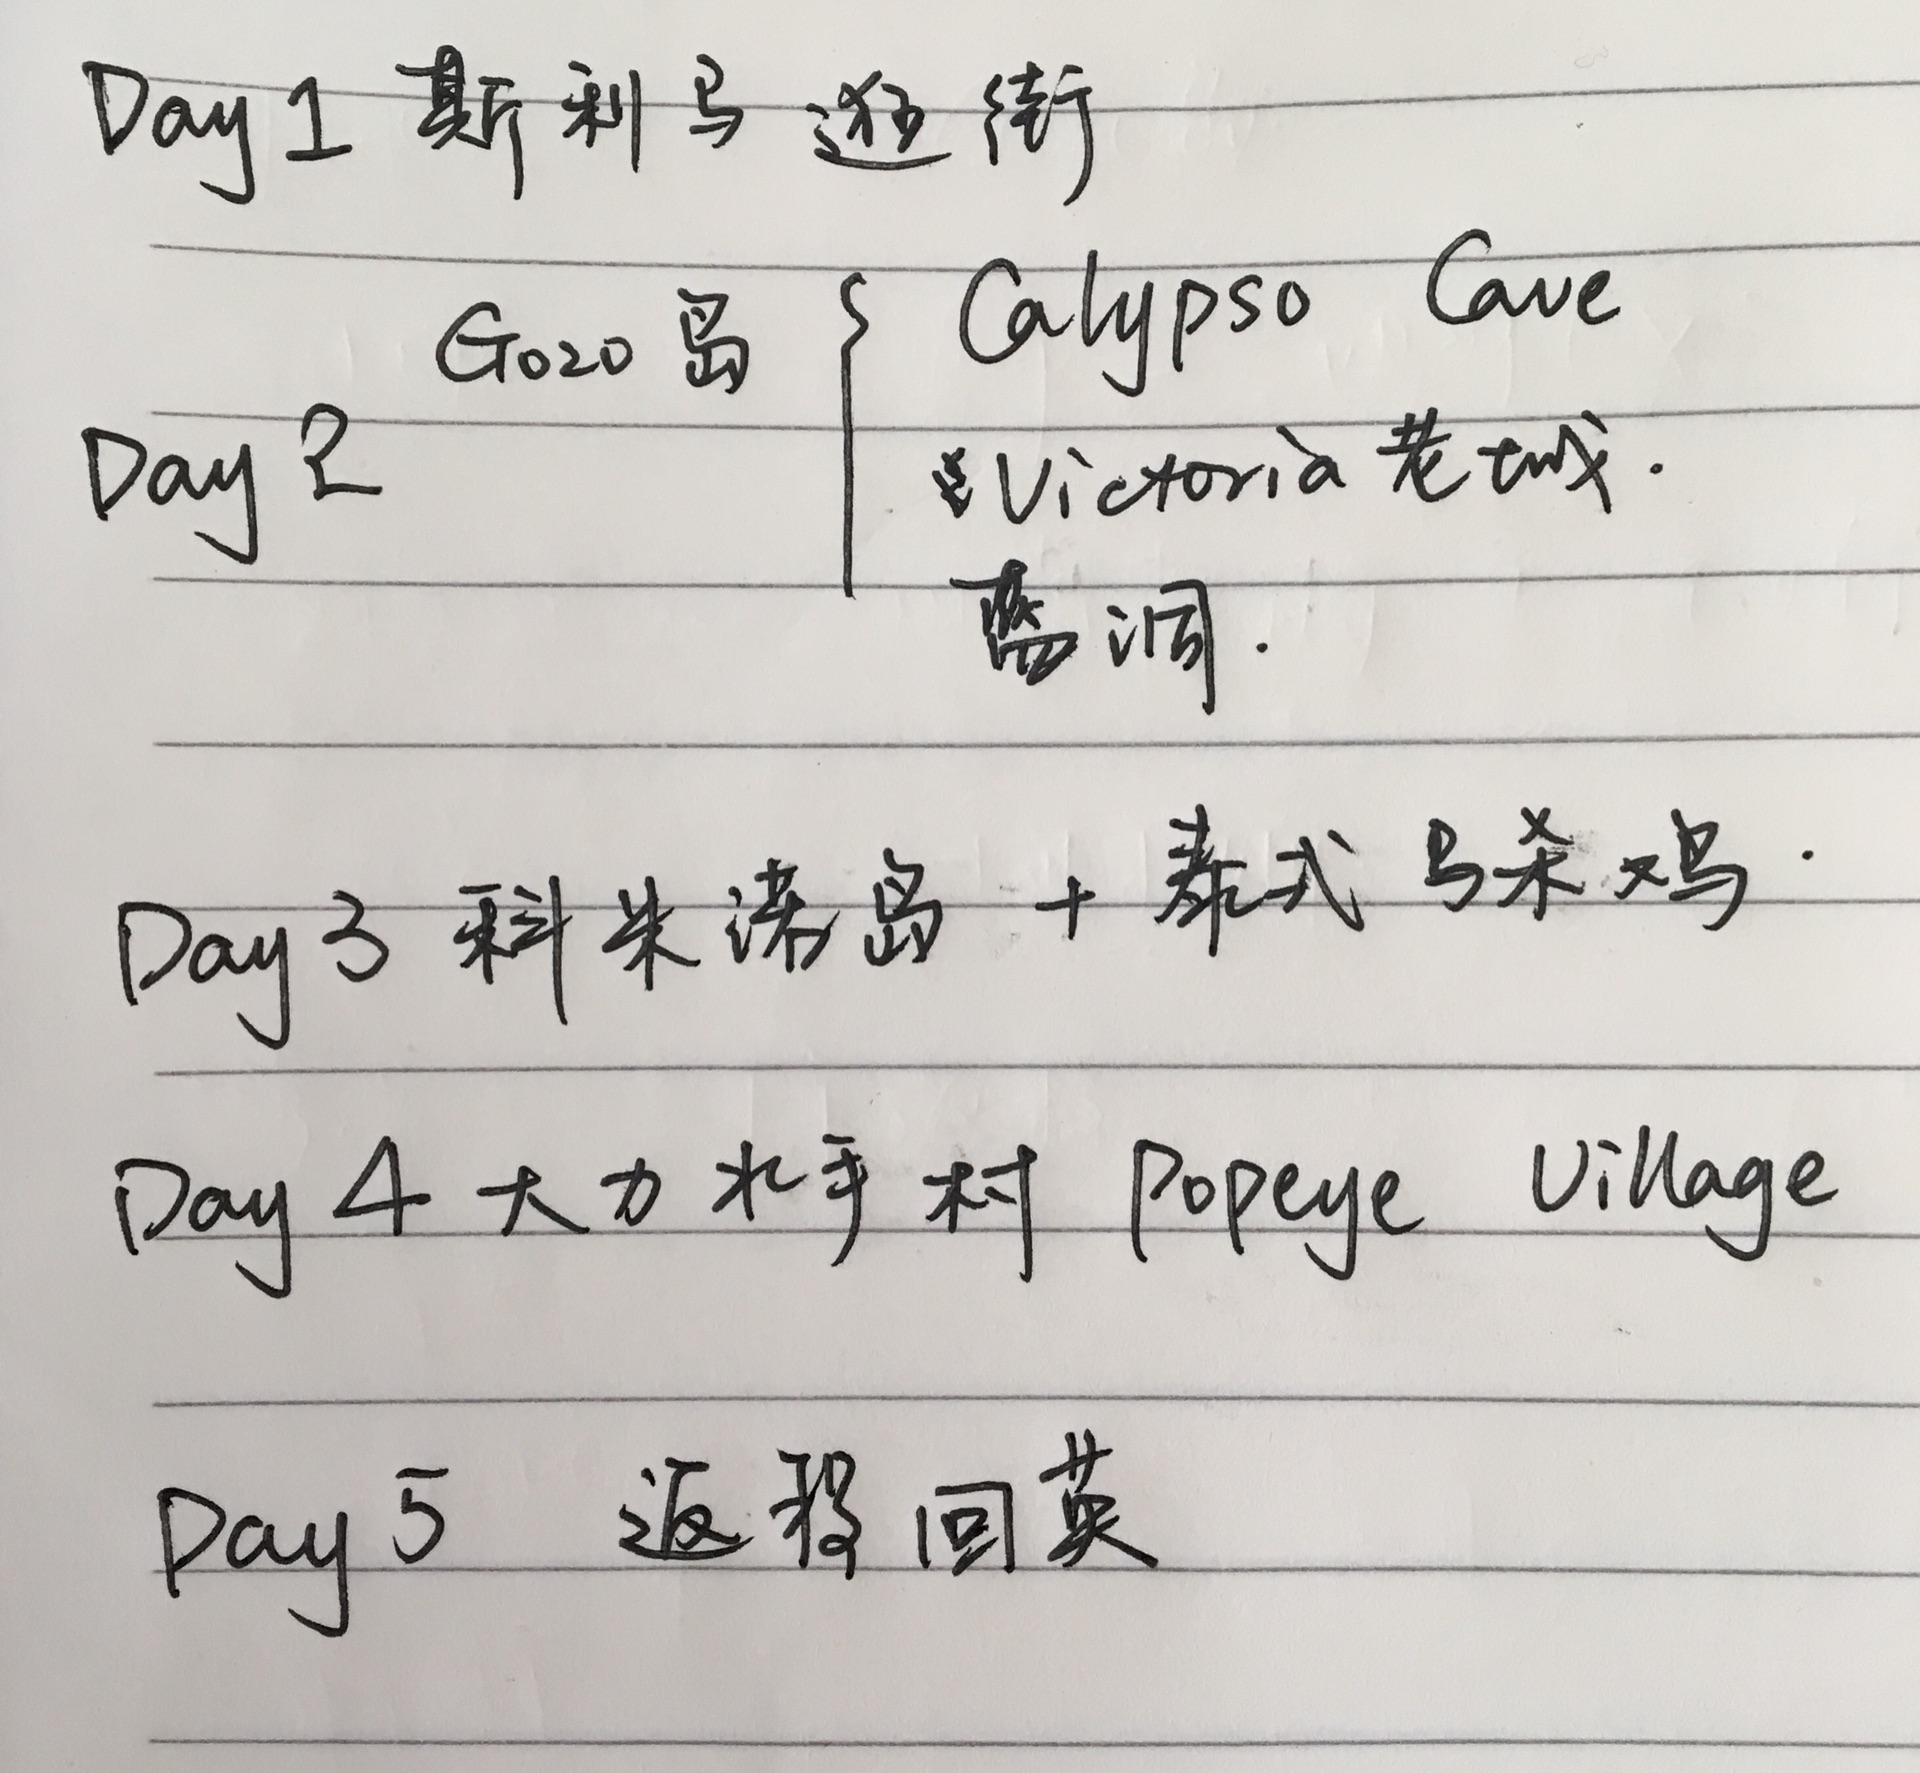 Day 1 斯利马 逛街
Gozo 岛 { Calypso Cave
Day 2
Victoria 老城.
蓝洞.
Day 3 科米诺岛 + 泰式马杀鸡.
Day 4 大力水手村 Popeye Village
Day 5 返程回英